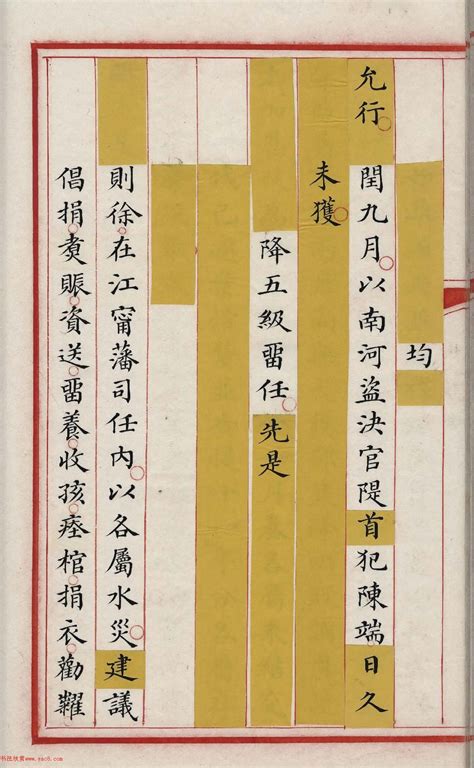 均
允行閏九月以南河盜決官隄首犯陳端日久
未獲
降五級畱任先是
則徐在江甯藩司任內以各屬水災建議
倡捐煑賑資送畱養收孩瘞棺捐衣勸糶
书法欣赏www.yac8.com